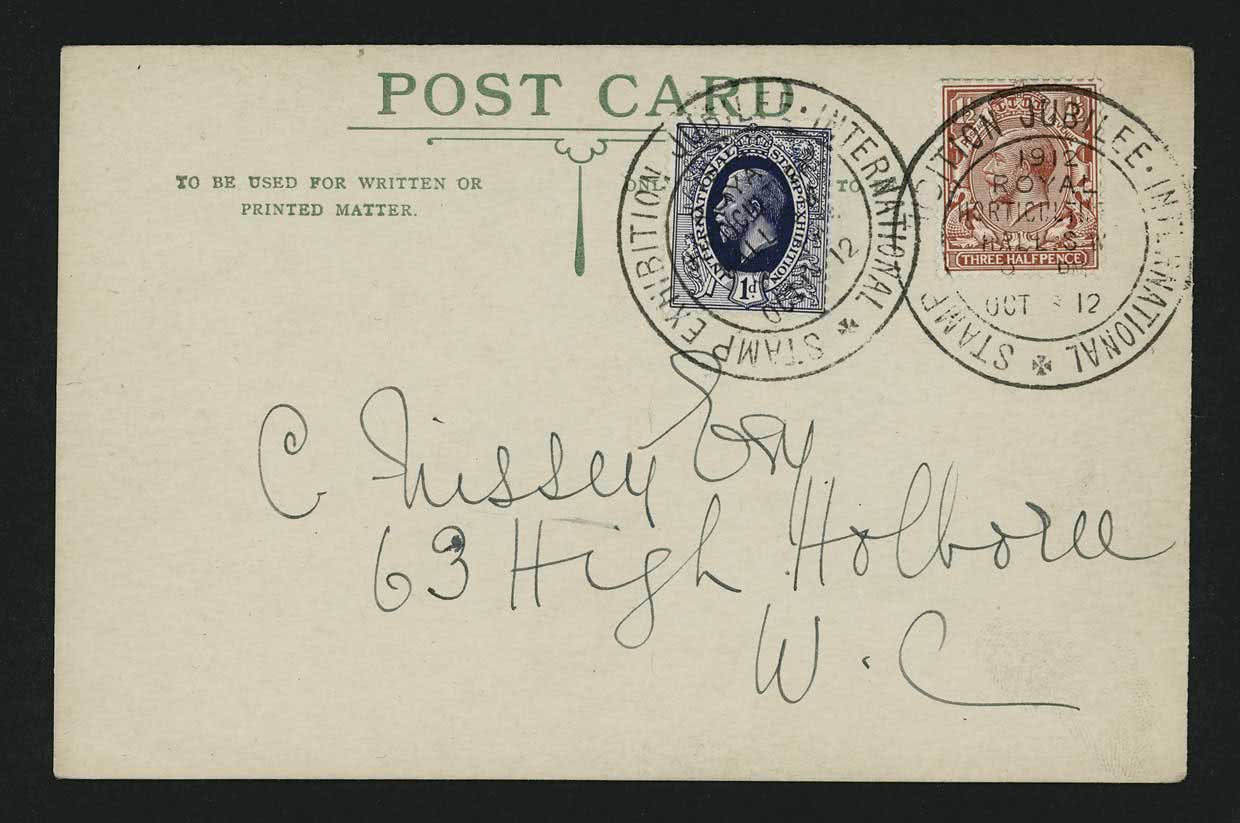 POST CARD
TO BE USED FOR WRITTEN OR
PRINTED MATTER.
TO
INTERNATIONAL STAMP·EXHIBITION
1d
STAMP EXHIBITION JUBILEE · INTERNATIONAL
12
THREE HALFPENCE
STAMP JUBILEE · INTERNATIONAL
1912
ROYAL
HALL S.W
OCT 12
C Nissen Esq
63 High Holborn
W.C